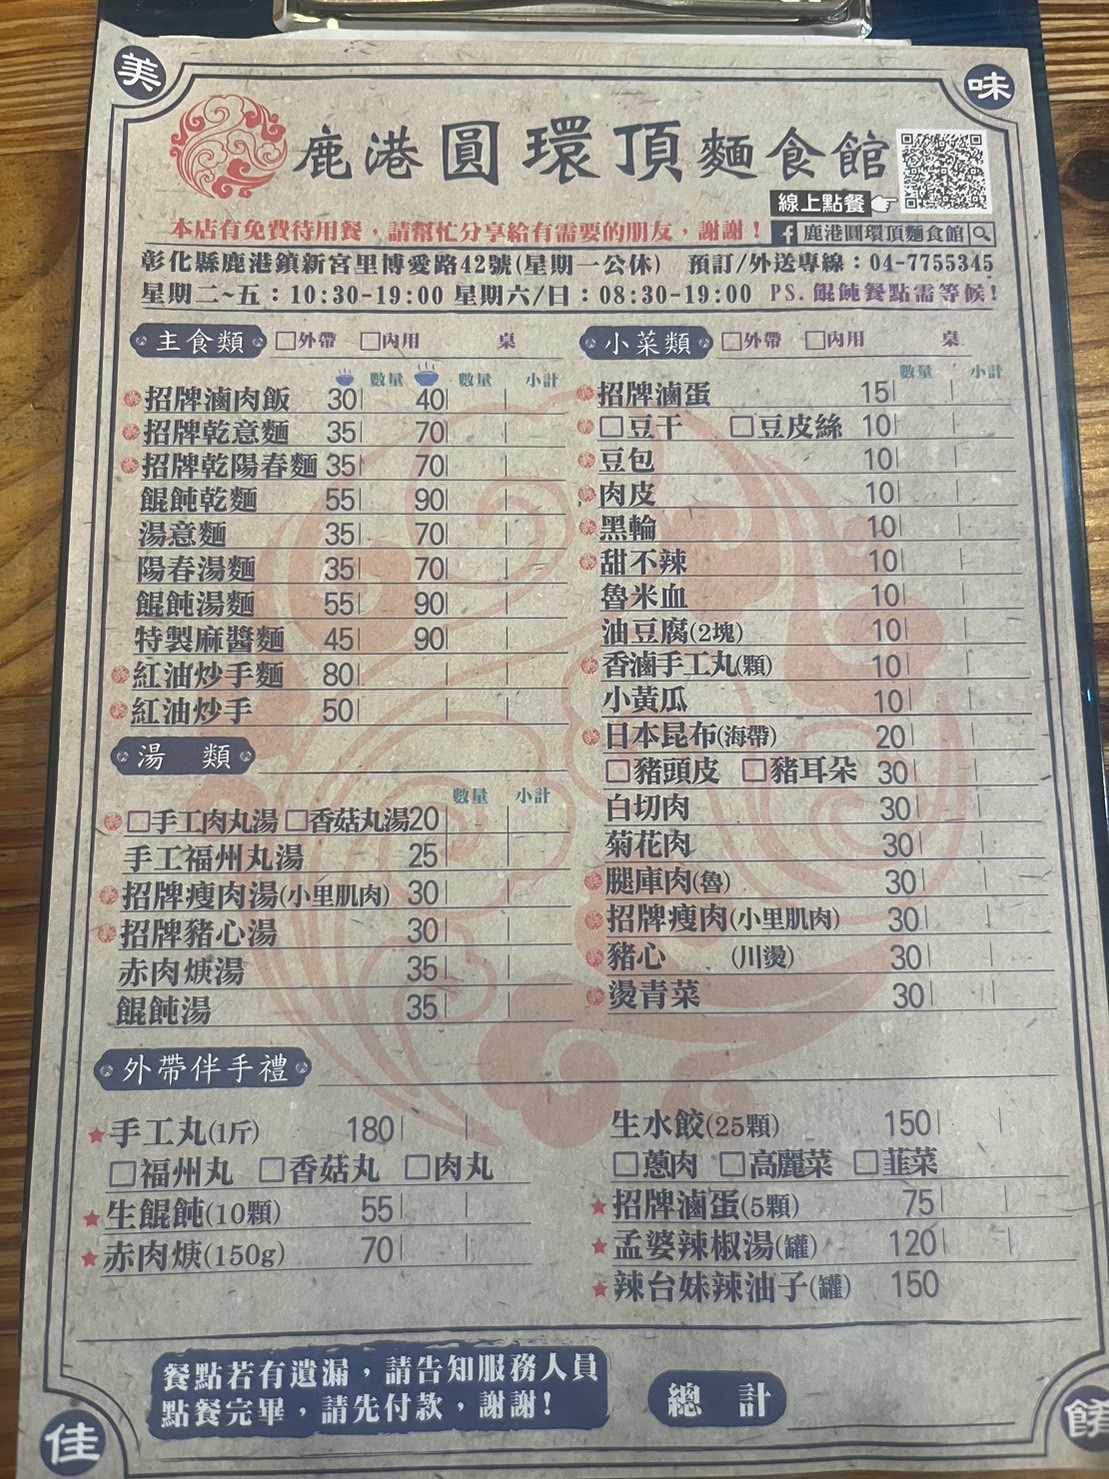 美
味
鹿港圓環頂麵食館
線上點餐
本店有免費待用餐，請幫忙分享給有需要的朋友，謝謝！
鹿港圓環頂麵食館
彰化縣鹿港鎮新宮里博愛路42號(星期一公休) 預訂/外送專線：04-7755345
星期二~五：10:30-19:00 星期六/日：08:30-19:00 PS.餛飩餐點需等候!
主食類 □外帶 □內用 桌
數量 數量 小計
招牌滷肉飯 30 40
招牌乾意麵 35 70
招牌乾陽春麵 35 70
餛飩乾麵 55 90
湯意麵 35 70
陽春湯麵 35 70
餛飩湯麵 55 90
特製麻醬麵 45 90
紅油炒手麵 80
紅油炒手 50
湯 類
數量 小計
□手工肉丸湯 □香菇丸湯 20
手工福州丸湯 25
招牌瘦肉湯(小里肌肉) 30
招牌豬心湯 30
赤肉焿湯 35
餛飩湯 35
小菜類 □外帶 □內用 桌
數量 小計
招牌滷蛋 15
□豆干 □豆皮絲 10
豆包 10
肉皮 10
黑輪 10
甜不辣 10
魯米血 10
油豆腐(2塊) 10
香滷手工丸(顆) 10
小黃瓜 10
日本昆布(海帶) 20
□豬頭皮 □豬耳朵 30
白切肉 30
菊花肉 30
腿庫肉(魯) 30
招牌瘦肉(小里肌肉) 30
豬心 (川燙) 30
燙青菜 30
外帶伴手禮
手工丸(1斤) 180
□福州丸 □香菇丸 □肉丸
生餛飩(10顆) 55
赤肉焿(150g) 70
生水餃(25顆) 150
□蔥肉 □高麗菜 □韮菜
招牌滷蛋(5顆) 75
孟婆辣椒湯(罐) 120
辣台妹辣油子(罐) 150
餐點若有遺漏，請告知服務人員
點餐完畢，請先付款，謝謝!
總 計
佳
餚